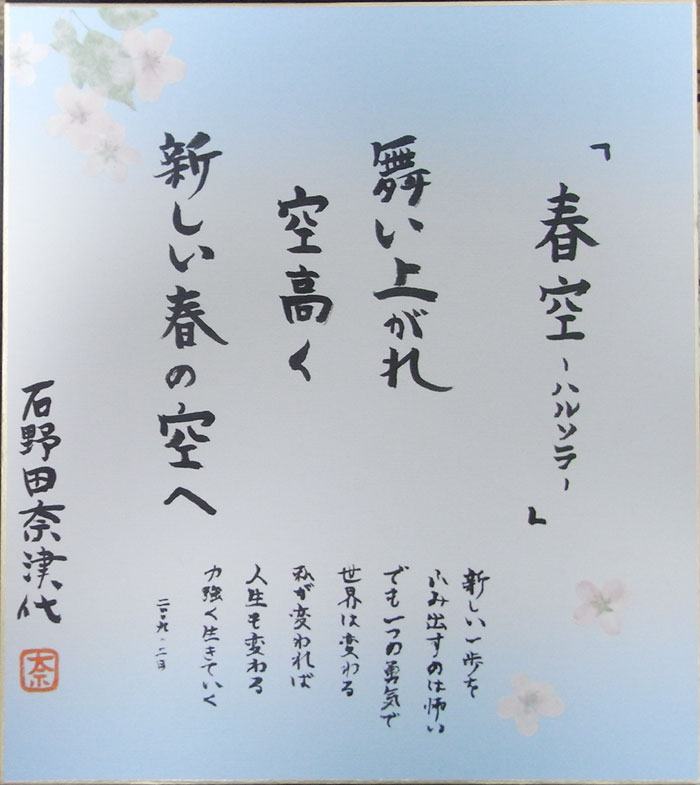 「春空〜ハルソラ〜」
舞い上がれ
空高く
新しい春の空へ
新しい一歩を
ふみ出すのは怖い
でも一つの勇気で
世界は変わる
私が変われば
人生も変わる
力強く生きていく
二〇〇九・二月
石野田奈津代
奈